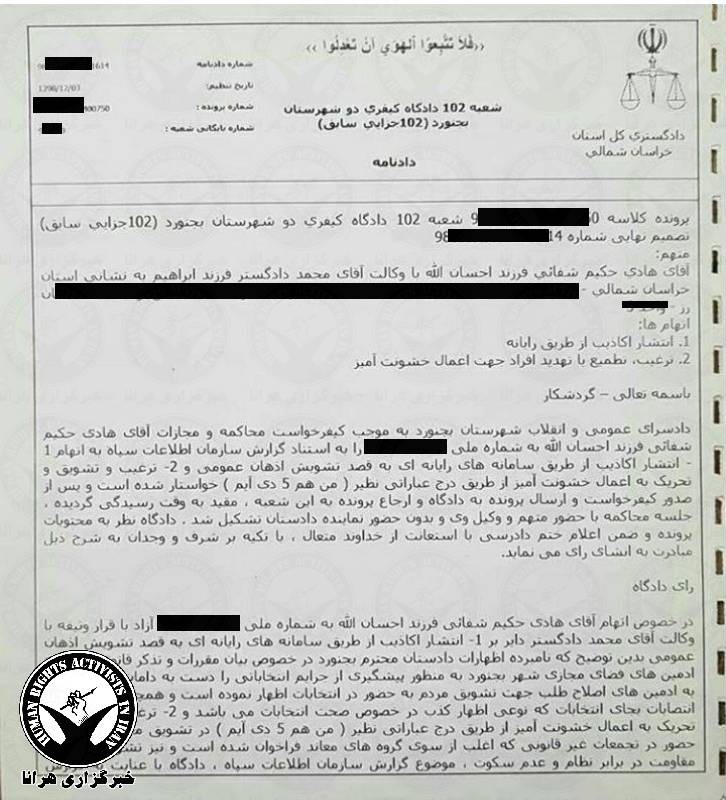 ‹‹فَلاَ تَتَّبِعوُا الهَوي اَنْ تَعْدِلُوا ››
شماره دادنامه
1614
تاریخ تنظیم:
1398/12/03
شماره پرونده :
800750
شماره بایگانی شعبه :
شعبه 102 دادگاه کیفری دو شهرستان
بجنورد (102جزایی سابق)
دادنامه
دادگستری کل استان
خراسان شمالی
پرونده کلاسه 9 50 شعبه 102 دادگاه کیفری دو شهرستان بجنورد (102جزایی سابق)
تصمیم نهایی شماره 98 14
متهم:
آقای هادی حکیم شفائی فرزند احسان الله با وکالت آقای محمد دادگستر فرزند ابراهیم به نشانی استان
خراسان شمالی -
رز - واحد 5
اتهام ها:
1. انتشار اکاذیب از طریق رایانه
2. ترغیب، تطمیع یا تهدید افراد جهت اعمال خشونت آمیز
باسمه تعالی – گردشکار
دادسرای عمومی و انقلاب شهرستان بجنورد به موجب کیفرخواست محاکمه و مجازات آقای هادی حکیم
شفائی فرزند احسان الله به شماره ملی را به استناد گزارش سازمان اطلاعات سپاه به اتهام 1
- انتشار اکاذیب از طریق سامانه های رایانه ای به قصد تشویش اذهان عمومی و 2- ترغیب و تشویق و
تحریک به اعمال خشونت آمیز از طریق درج عباراتی نظیر ( من هم 5 دی آیم ) خواستار شده است و پس از
صدور کیفرخواست و ارسال پرونده به دادگاه و ارجاع پرونده به این شعبه ، مقید به وقت رسیدگی گردیده ،
جلسه محاکمه با حضور متهم و وکیل وی و بدون حضور نماینده دادستان تشکیل شد . دادگاه نظر به محتویات
پرونده و ضمن اعلام ختم دادرسی با استعانت از خداوند متعال ، با تکیه بر شرف و وجدان به شرح ذیل
مبادرت به انشای رای می نماید.
رای دادگاه
در خصوص اتهام آقای هادی حکیم شفائی فرزند احسان الله به شماره ملی آزاد با قرار وثیقه با
وکالت آقای محمد دادگستر دایر بر 1- انتشار اکاذیب از طریق سامانه های رایانه ای به قصد تشویش اذهان
عمومی بدین توضیح که نامبرده اظهارات دادستان محترم بجنورد در خصوص بیان مقررات و تذکر
ادمین های فضای مجازی شهر بجنورد به منظور پیشگیری از جرایم انتخاباتی را دست به
به ادمین های اصلاح طلب جهت تشویق مردم به حضور در انتخابات اظهار نموده است و
انتصابات بجای انتخابات که نوعی اظهار کذب در خصوص صحت انتخابات می باشد و 2-
تحریک به اعمال خشونت آمیز از طریق درج عباراتی نظیر ( من هم 5 دی آیم ) در تشویق
حضور در تجمعات غیر قانونی که اغلب از سوی گروه های معاند فراخوان شده است و نیز
مقاومت در برابر نظام و عدم سکوت ، موضوع گزارش سازمان اطلاعات سپاه ، دادگاه با عنایت به
HUMAN RIGHTS ACTIVISTS IN IRAN
خبرگزاری هرانا